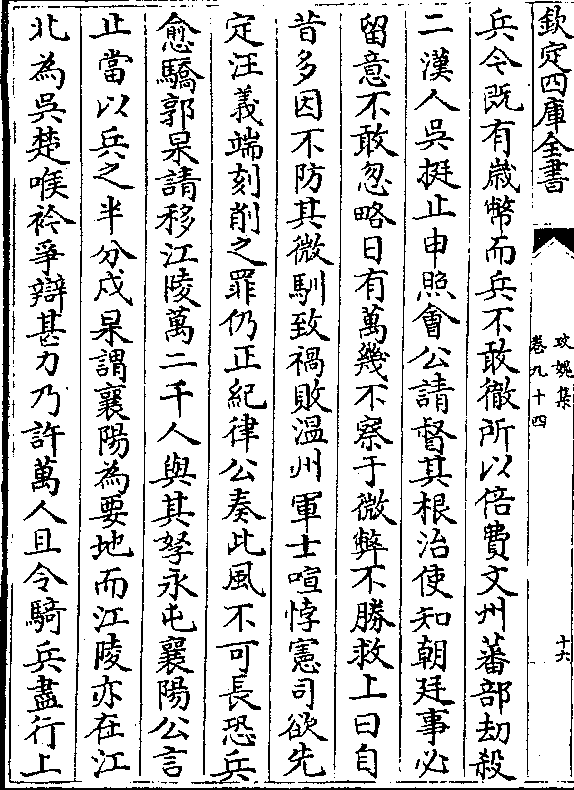 欽定四庫全書
攻媿集
卷九十四
十六
兵今既有歲幣而兵不敢徹所以倍費文州蕃部刧殺
二漢人吳挺止申照會公請督其根治使知朝廷事必
留意不敢忽略日有萬幾不察于微弊不勝救上曰自
昔多因不防其微馴致禍敗溫州軍士喧悖憲司欲先
定汪義端刻削之罪仍正紀律公奏此風不可長恐兵
愈驕郭杲請移江陵萬二千人與其孥永屯襄陽公言
止當以兵之半分戍杲謂襄陽為要地而江陵亦在江
北為吳楚喉衿爭辯甚力乃許萬人且令騎兵盡行上